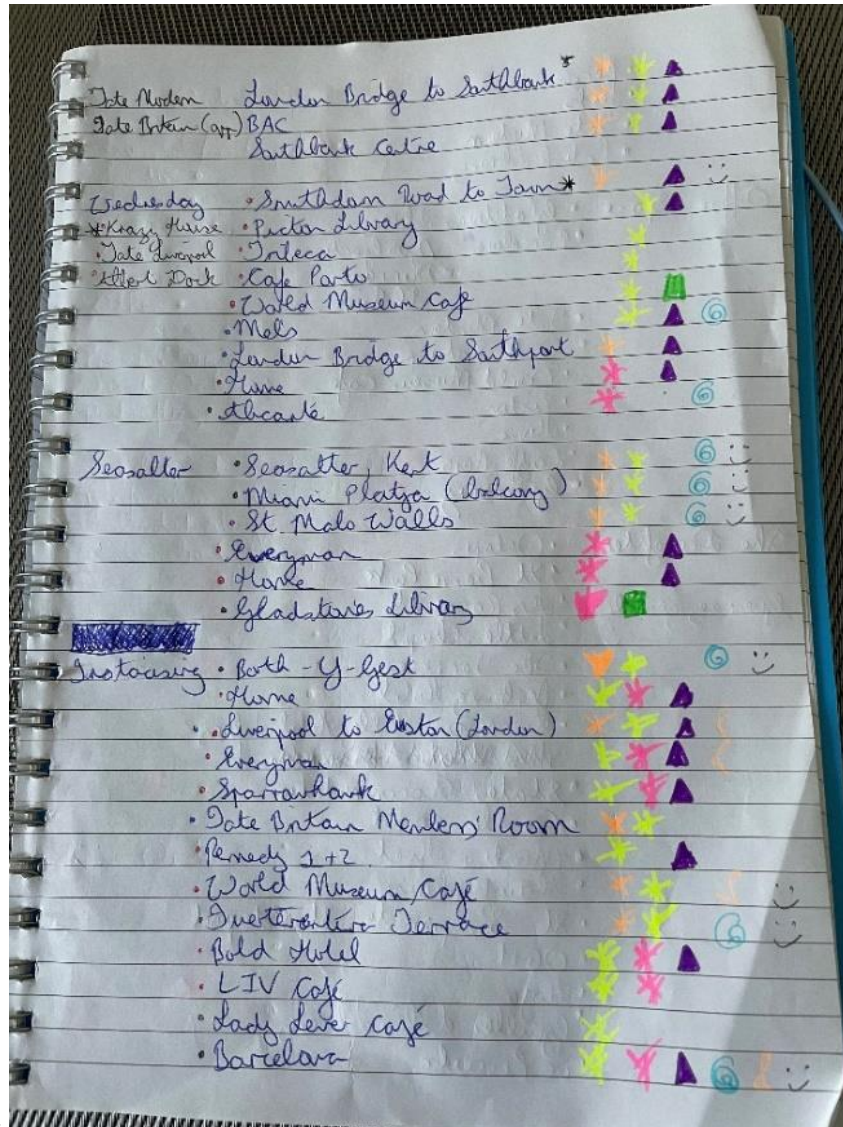 Tate Modern London Bridge to Southbank *
Tate Britain (app) BAC
Southbank Centre
Wednesday • Smithdown Road to Town *
* Krazy House • Picton Library
• Tate Liverpool •
• Albert Dock • Cafe Porto
• World Museum Café
• Mels
• London Bridge to Southport
• Home
• Alicante
Seasalter • Seasalter, Kent
• Miami Platja (balcony)
• St Malo Walls
• Everyman
• Home
• Gladstone's Library
• Borth-Y-Gest
• Home
• Liverpool to Euston (London)
• Everyman
• Sparrowhawk
• Tate Britain Members' Room
• Remedy 1+2
• World Museum Café
• Terrace
• Bold Hotel
• LIV Café
• Lady Lever Café
• Barcelona